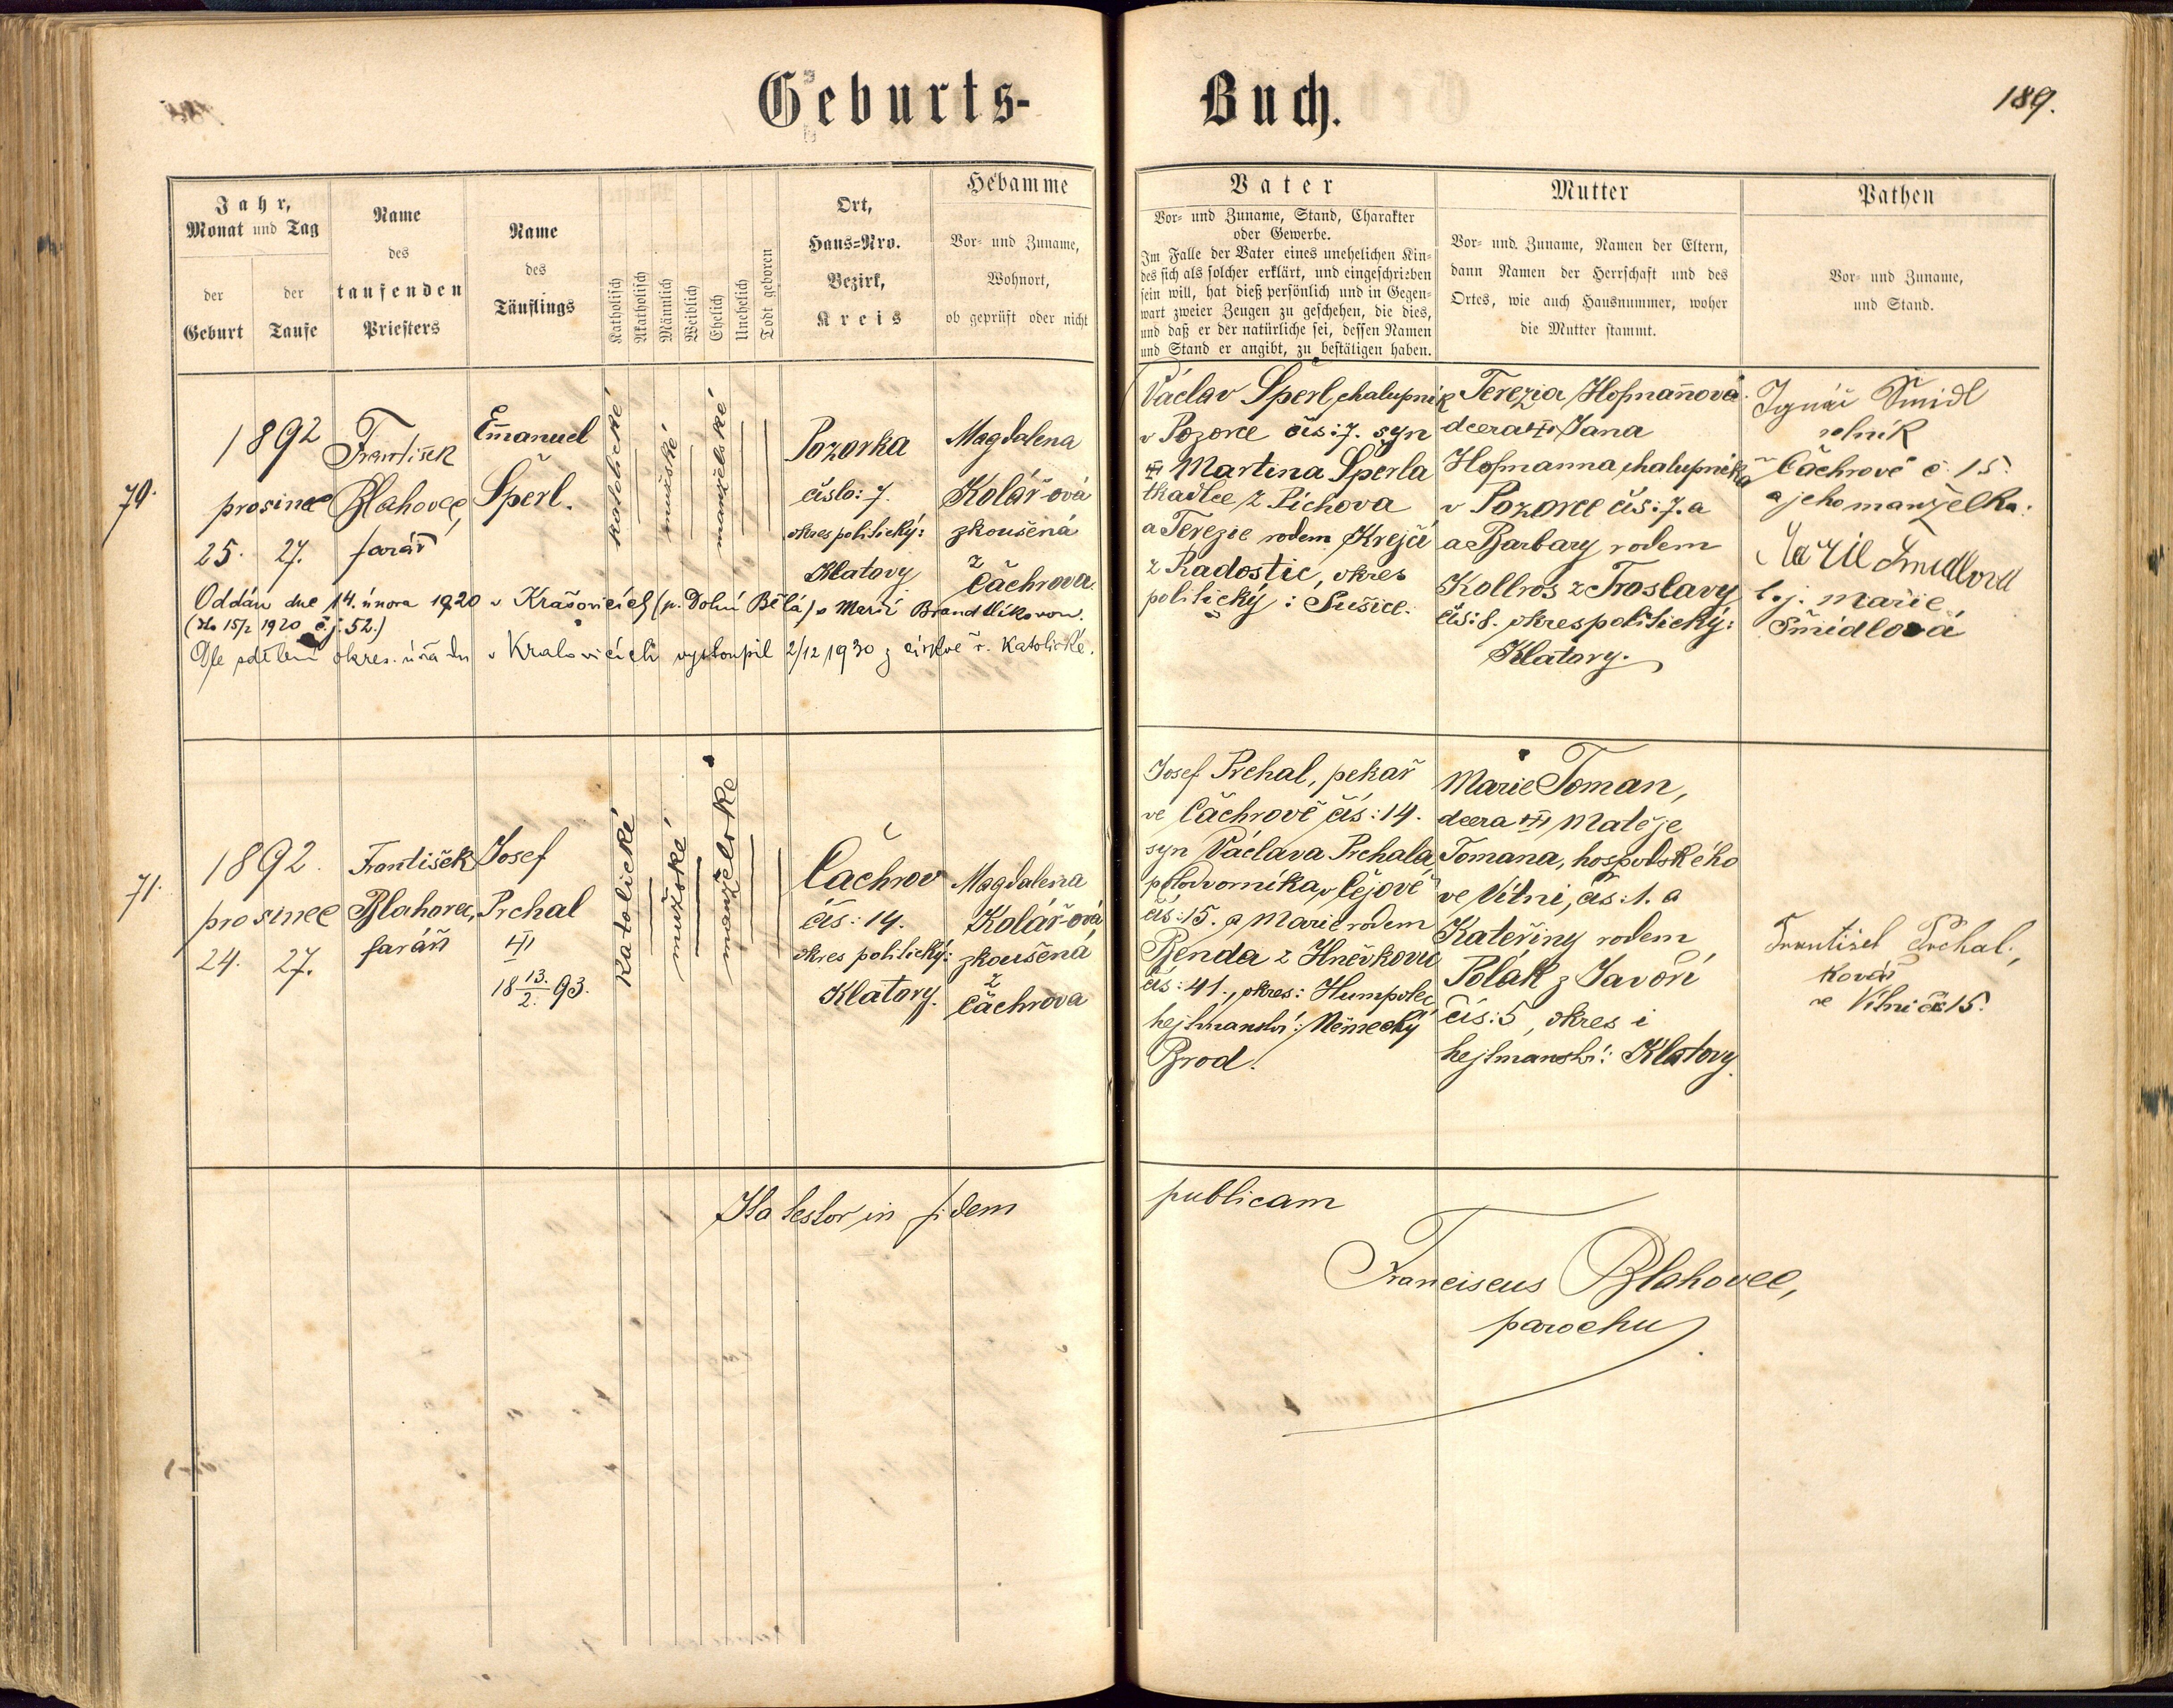 Geburts-
Buch.
189.
Jahr,
Monat und Tag
der
Geburt
der
Taufe
Name
des
taufenden
Priesters
Name
des
Täuflings
Katholisch
Akatholisch
Männlich
Weiblich
Ehelich
Unehelich
Todt geboren
Ort,
Haus=Nro.
Bezirk,
Kreis
Hebamme
Vor- und Zuname,
Wohnort,
ob geprüft oder nicht
Vater
Vor- und Zuname, Stand, Charakter
oder Gewerbe.
Im Falle der Vater eines unehelichen Kin=
des sich als solcher erklärt, und eingeschrieben
sein will, hat dieß persönlich und in Gegen=
wart zweier Zeugen zu geschehen, die dies,
und daß er der natürliche sei, dessen Namen
und Stand er angibt, zu bestätigen haben.
Mutter
Vor- und Zuname, Namen der Eltern,
dann Namen der Herrschaft und des
Ortes, wie auch Hausnummer, woher
die Mutter stammt.
Pathen
Vor- und Zuname,
und Stand.
70.
1892
prosinec
25. 27.
František
Blahovec,
farář
Emanuel
Šperl.
katolické
mužské
manželské
Pozorka
číslo: 7.
okres politický:
Klatovy
Magdalena
Kolář-ová
zkoušená
z
Čachrova.
Oddán dne 14. února 1920 v Krašovicích (p. Dolní Bělá) s Marií Brandtlíkovou.
(15/2 1920 č.j. 52.)
Dle sdělení okres. úřadu v Kralovicích vystoupil 2/12 1930 z církve ř. katolické.
Václav Šperl, chalupník
v Pozorce čís: 7. syn
Martina Šperla
tkadlce z Píchova
a Terezie rodem Krejčí
z Radostic, okres
politický: Sušice.
Terezia Hofmannová.
dcera Jana
Hofmanna, chalupníka
v Pozorce čís: 7. a
a Barbary rodem
Kollros z Froslavy
čís: 8. okres politický:
Klatovy.
Ignác Šmidl
rolník
v Čachrově č. 15.
a jeho manželka.
Marie Šmidlova
t. j. Marie
Šmídlová
71.
1892.
prosinec
24. 27.
František
Blahovec,
farář
Josef
Prchal
18 13./2. 93.
katolické
mužské
manželské
Čachrov
čís: 14.
okres politický:
Klatovy.
Magdalena
Kolář-ová
zkoušená
z
Čachrova
Josef Prchal, pekař
ve Čachrově čís: 14.
syn Václava Prchala,
polodvorníka, v Čejově
čís: 15. a Marie rodem
Benda z Hněvkovic
čís: 41., okres: Humpolec
hejtmanství: Německý
Brod.
Marie Toman,
dcera Matěje
Tomana, hospodského
ve Vítni, čís: 1. a
Kateřiny rodem
Polák z Javoří
čís: 5, okres i
hejtmanství: Klatovy.
František Prchal,
kovář
ve Vítni č. 15.
Ita testor in fidem
publicam
Franciscus Blahovec,
parochus.